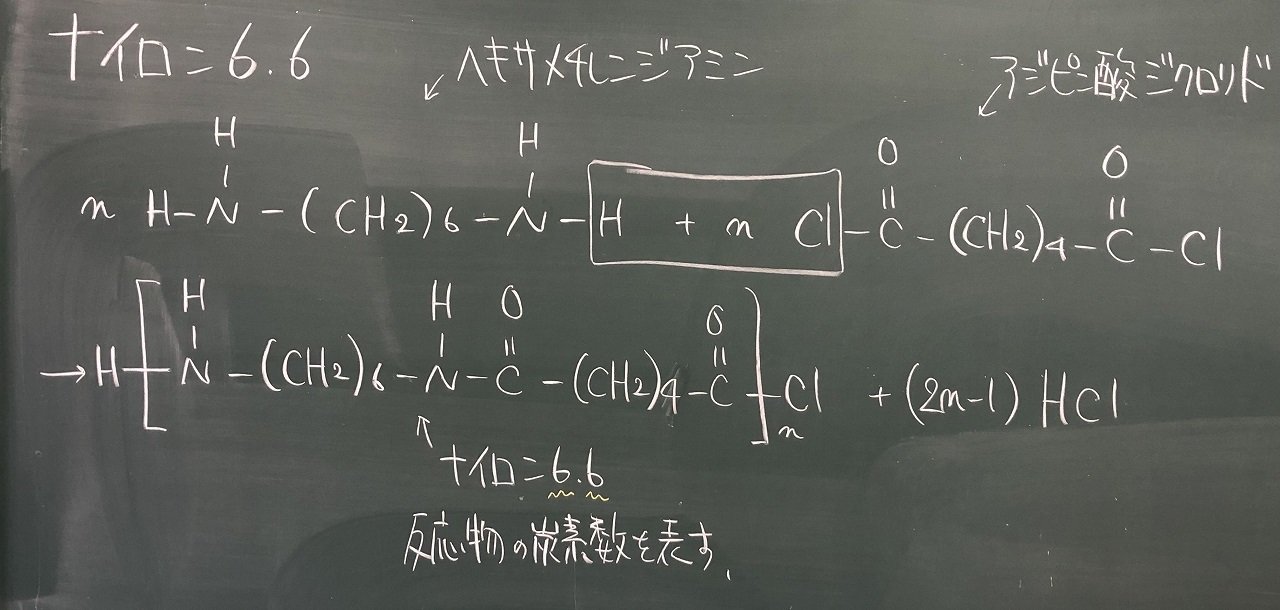 ナイロン6.6
ヘキサメチレンジアミン
アジピン酸ジクロリド
H H O O
n H-N-(CH2)6-N-H + n Cl-C-(CH2)4-C-Cl
H H O O
→H[N-(CH2)6-N-C-(CH2)4-C]n Cl + (2n-1) HCl
ナイロン6.6
反応物の炭素数を表す.